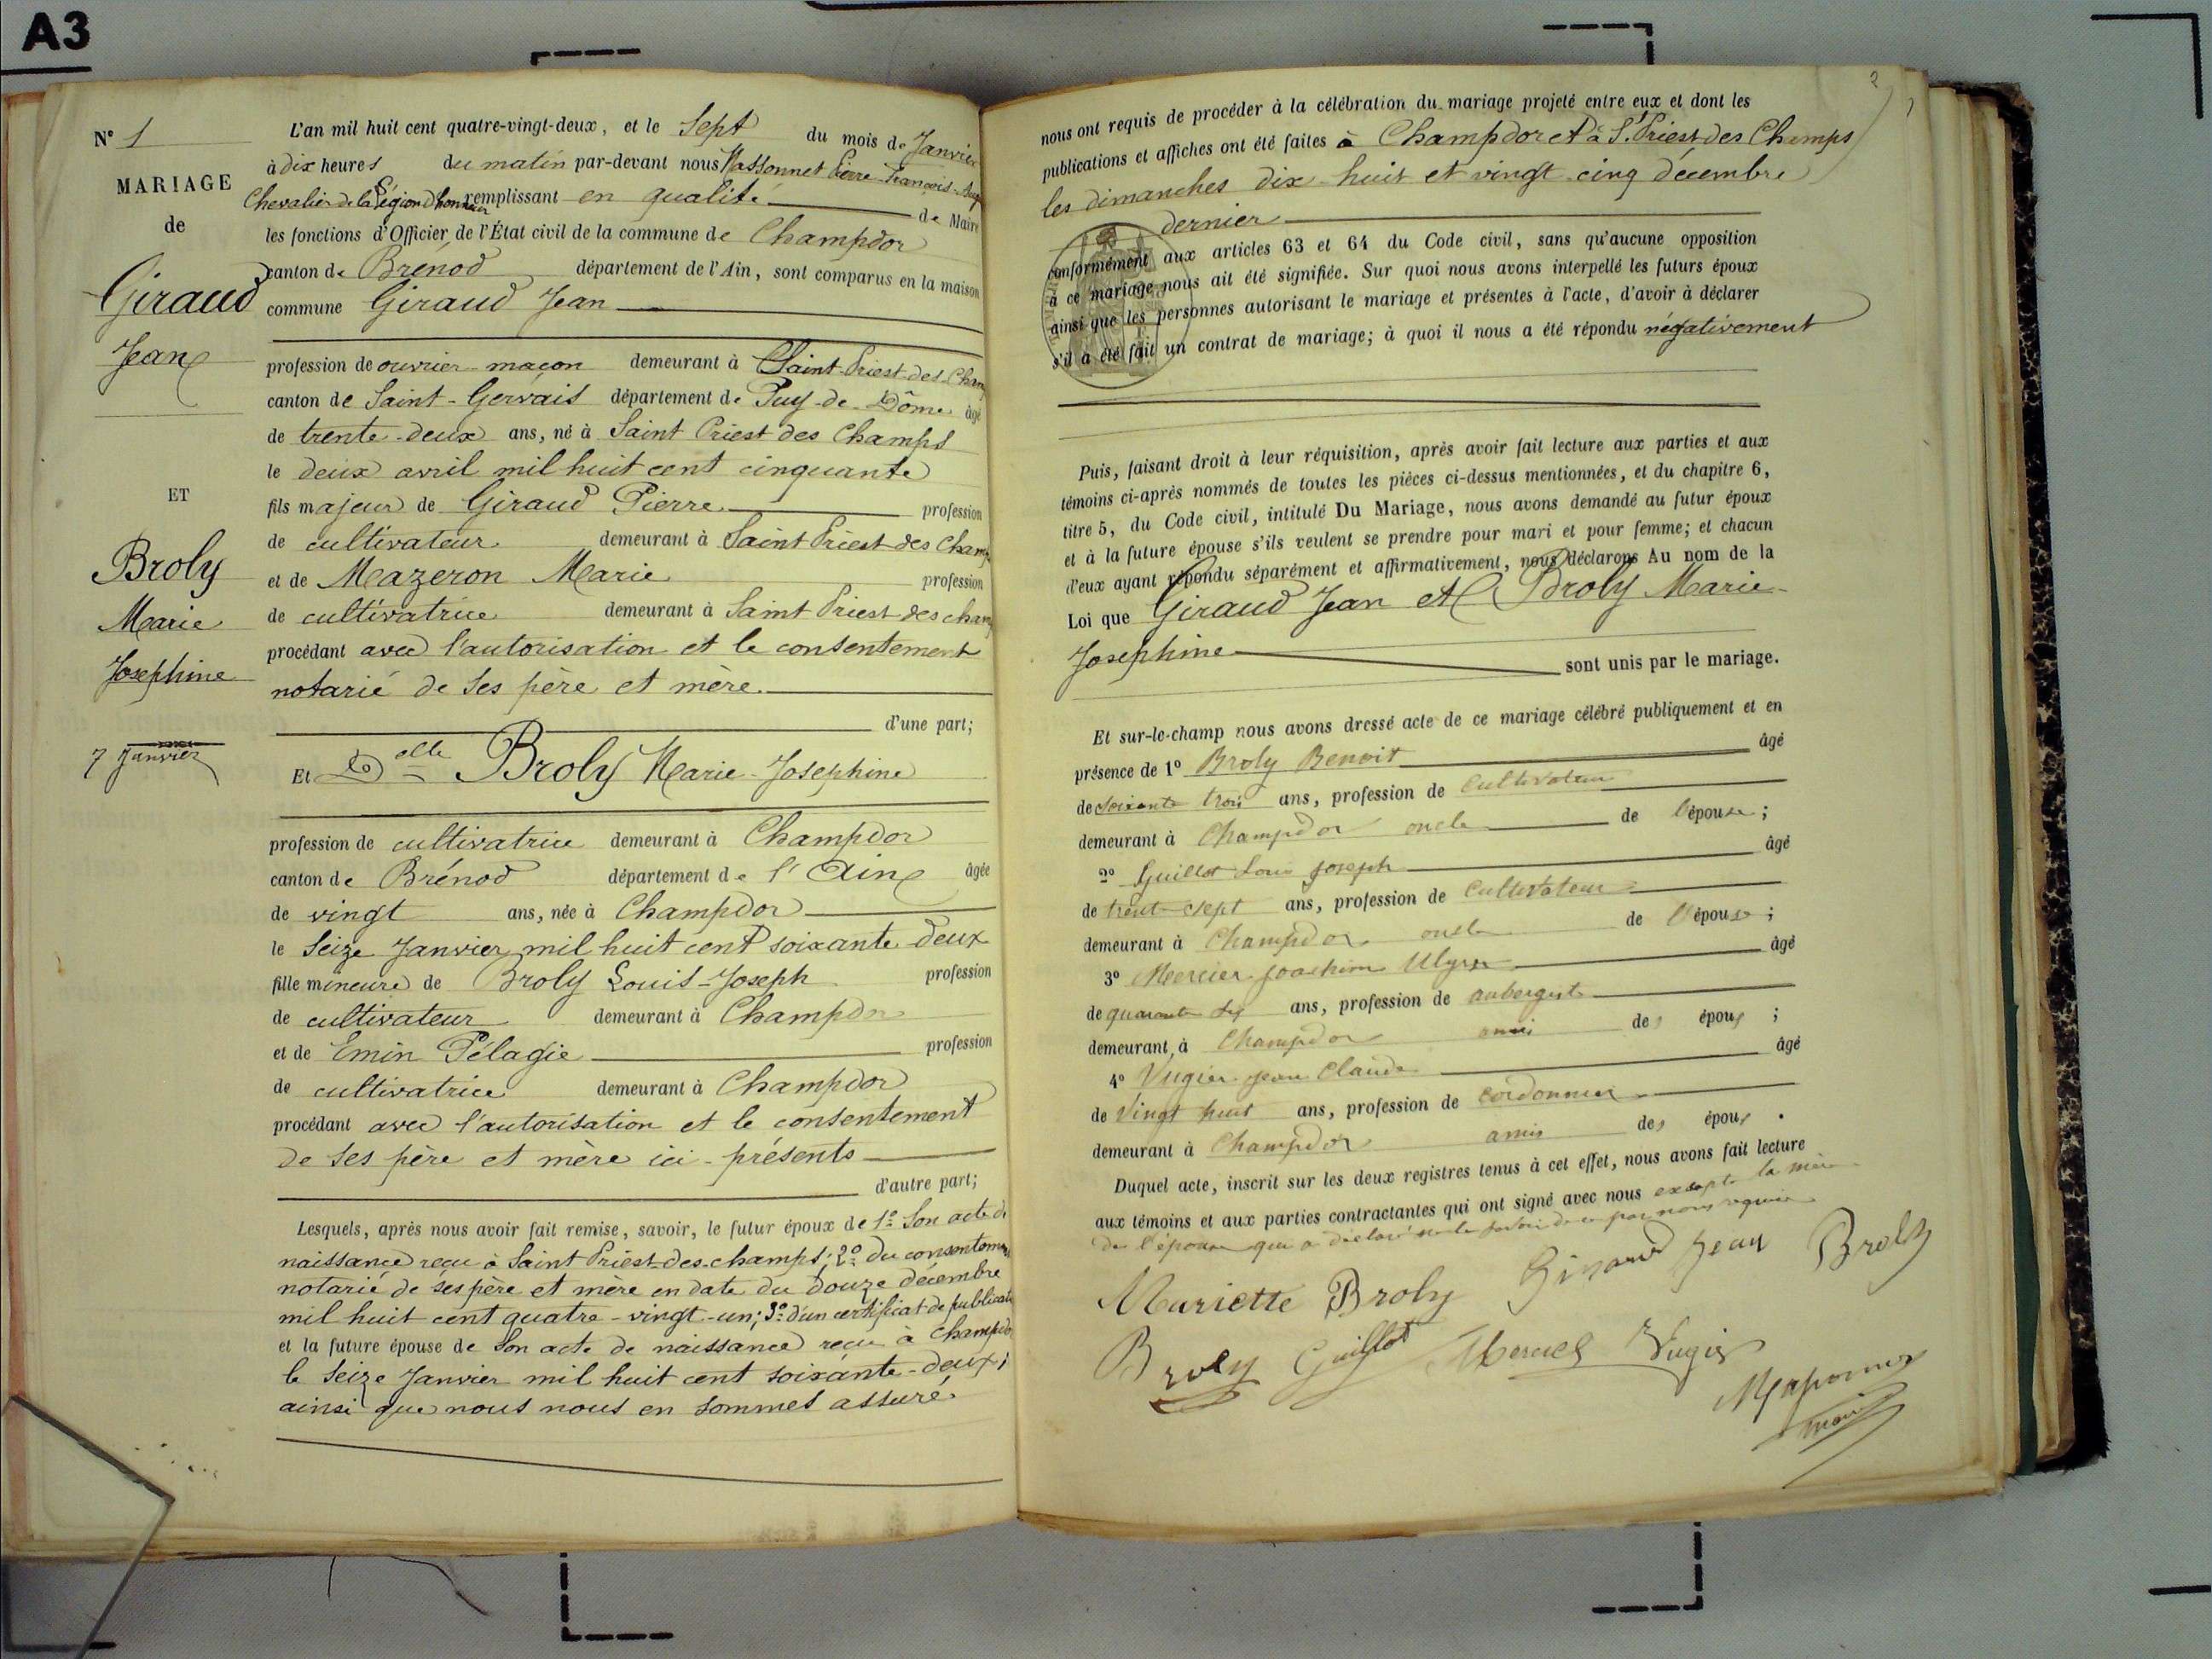 A3
N° 1
MARIAGE
de
Giraud
Jean
ET
Broly
Marie
Josephine
7 Janvier
L'an mil huit cent quatre-vingt-deux, et le Sept du mois de Janvier
à dix heures du matin par-devant nous Massonnet Pierre-François-
Chevalier de la Légion d'honneur remplissant en qualité de Maire
les fonctions d'Officier de l'État civil de la commune de Champdor
canton de Brénod département de l'Ain, sont comparus en la maison
commune Giraud Jean
profession de ouvrier-maçon demeurant à Saint-Priest-des-Champ
canton de Saint-Gervais département de Puy-de-Dôme âgé
de trente-deux ans, né à Saint Priest des Champs
le deux avril mil huit cent cinquante
fils majeur de Giraud Pierre profession
de cultivateur demeurant à Saint Priest-des Champ
et de Mazeron Marie profession
de cultivatrice demeurant à Saint Priest-des champ
procédant avec l'autorisation et le consentement
notarié de ses père et mère.
d'une part;
Et Delle Broly Marie-Josephine
profession de cultivatrice demeurant à Champdor
canton de Brénod département de l'Ain âgée
de vingt ans, née à Champdor
le Seize Janvier mil huit cent soixante-deux
fille mineure de Broly Louis-Joseph profession
de cultivateur demeurant à Champdor
et de Emin Pélagie profession
de cultivatrice demeurant à Champdor
procédant avec l'autorisation et le consentement
de ses père et mère ici-présents
d'autre part;
Lesquels, après nous avoir fait remise, savoir, le futur époux de 1° Son acte de
naissance reçu à Saint Priest-des-champs; 2° du consentement
notarié de ses père et mère en date du douze décembre
mil huit cent quatre-vingt-un; 3° d'un certificat de publication
et la future épouse de Son acte de naissance reçu à Champdor
le Seize Janvier mil huit cent soixante-deux;
ainsi que nous nous en sommes assuré
2
nous ont requis de procéder à la célébration du mariage projeté entre eux et dont les
publications et affiches ont été faites à Champdor et à St. Priest-des Champs
les dimanches dix-huit et vingt-cinq décembre
dernier
conformément aux articles 63 et 64 du Code civil, sans qu'aucune opposition
à ce mariage nous ait été signifiée. Sur quoi nous avons interpellé les futurs époux
ainsi que les personnes autorisant le mariage et présentes à l'acte, d'avoir à déclarer
s'il a été fait un contrat de mariage; à quoi il nous a été répondu négativement
Puis, faisant droit à leur réquisition, après avoir fait lecture aux parties et aux
témoins ci-après nommés de toutes les pièces ci-dessus mentionnées, et du chapitre 6,
titre 5, du Code civil, intitulé Du Mariage, nous avons demandé au futur époux
et à la future épouse s'ils veulent se prendre pour mari et pour femme; et chacun
d'eux ayant répondu séparément et affirmativement, nous déclarons Au nom de la
Loi que Giraud Jean et Broly Marie-
Josephine sont unis par le mariage.
Et sur-le-champ nous avons dressé acte de ce mariage célébré publiquement et en
présence de 1° Broly Benoit âgé
de soixante trois ans, profession de Cultivateur
demeurant à Champdor oncle de l'épouse;
2° Guillot Louis Joseph âgé
de trente-sept ans, profession de Cultivateur
demeurant à Champdor oncle de l'épouse;
3° Mercier Joachim Ulysse âgé
de quarante six ans, profession de aubergiste
demeurant à Champdor amis des époux;
4° Vugier Jean Claude âgé
de Vingt huit ans, profession de cordonnier
demeurant à Champdor amis des époux.
Duquel acte, inscrit sur les deux registres tenus à cet effet, nous avons fait lecture
aux témoins et aux parties contractantes qui ont signé avec nous excepté la mère
de l'épouse qui a déclaré ne le savoir de ce par nous requise
Mariette Broly Giraud Jean Broly
Broly Guillot Mercier Vugier
maire